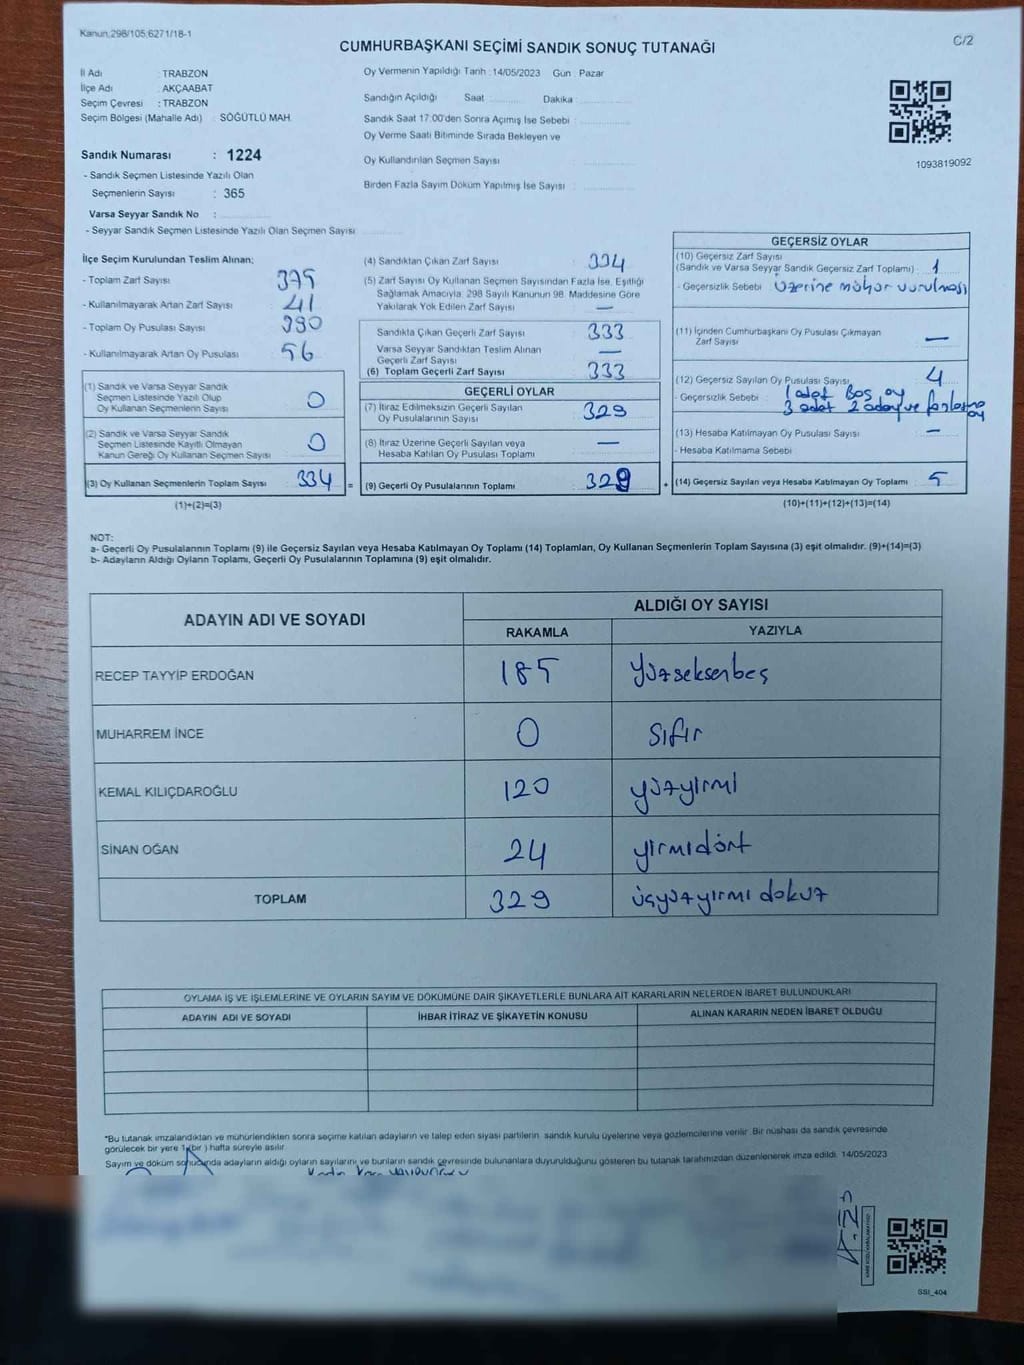 Kanun:298/105,6271/18-1
CUMHURBAŞKANI SEÇİMİ SANDIK SONUÇ TUTANAĞI
C/2
İl Adı : TRABZON
İlçe Adı : AKÇAABAT
Seçim Çevresi : TRABZON
Seçim Bölgesi (Mahalle Adı) : SÖĞÜTLÜ MAH.
Sandık Numarası : 1224
- Sandık Seçmen Listesinde Yazılı Olan
Seçmenlerin Sayısı : 365
Varsa Seyyar Sandık No :
- Seyyar Sandık Seçmen Listesinde Yazılı Olan Seçmen Sayısı
Oy Vermenin Yapıldığı Tarih : 14/05/2023 Gün : Pazar
Sandığın Açıldığı Saat Dakika
Sandık Saat 17:00'den Sonra Açımış İse Sebebi :
Oy Verme Saati Bitiminde Sırada Bekleyen ve
Oy Kullandırılan Seçmen Sayısı
Birden Fazla Sayım Döküm Yapılmış İse Sayısı :
1093819092
İlçe Seçim Kurulundan Teslim Alınan;
- Toplam Zarf Sayısı 375
- Kullanılmayarak Artan Zarf Sayısı 41
- Toplam Oy Pusulası Sayısı 390
- Kullanılmayarak Artan Oy Pusulası 56
(1) Sandık ve Varsa Seyyar Sandık
Seçmen Listesinde Yazılı Olup
Oy Kullanan Seçmenlerin Sayısı 0
(2) Sandık ve Varsa Seyyar Sandık
Seçmen Listesinde Kayıtlı Olmayan
Kanun Gereği Oy Kullanan Seçmen Sayısı 0
(3) Oy Kullanan Seçmenlerin Toplam Sayısı 334 =
(1)+(2)=(3)
(4) Sandıktan Çıkan Zarf Sayısı 334
(5) Zarf Sayısı Oy Kullanan Seçmen Sayısından Fazla İse, Eşitliği
Sağlamak Amacıyla, 298 Sayılı Kanunun 98. Maddesine Göre
Yakılarak Yok Edilen Zarf Sayısı —
Sandıkta Çıkan Geçerli Zarf Sayısı 333
Varsa Seyyar Sandıktan Teslim Alınan
Geçerli Zarf Sayısı —
(6) Toplam Geçerli Zarf Sayısı 333
GEÇERLİ OYLAR
(7) İtiraz Edilmeksizin Geçerli Sayılan
Oy Pusulasının Sayısı 329
(8) İtiraz Üzerine Geçerli Sayılan veya
Hesaba Katılan Oy Pusulası Toplamı —
(9) Geçerli Oy Pusulalarının Toplamı 329 +
GEÇERSİZ OYLAR
(10) Geçersiz Zarf Sayısı
(Sandık ve Varsa Seyyar Sandık Geçersiz Zarf Toplamı) : 1
- Geçersizlik Sebebi üzerine mühür vurulması
(11) İçinden Cumhurbaşkanı Oy Pusulası Çıkmayan
Zarf Sayısı —
(12) Geçersiz Sayılan Oy Pusulası Sayısı 4
- Geçersizlik Sebebi : 1 adet Boş oy
3 adet 2 aday ve fazlasına oy
(13) Hesaba Katılmayan Oy Pusulası Sayısı —
- Hesaba Katılmama Sebebi
(14) Geçersiz Sayılan veya Hesaba Katılmayan Oy Toplamı 5
(10)+(11)+(12)+(13)=(14)
NOT:
a- Geçerli Oy Pusulalarının Toplamı (9) ile Geçersiz Sayılan veya Hesaba Katılmayan Oy Toplamı (14) Toplamları, Oy Kullanan Seçmenlerin Toplam Sayısına (3) eşit olmalıdır. (9)+(14)=(3)
b- Adayların Aldığı Oyların Toplamı, Geçerli Oy Pusulalarının Toplamına (9) eşit olmalıdır.
ADAYIN ADI VE SOYADI
ALDIĞI OY SAYISI
RAKAMLA YAZIYLA
RECEP TAYYİP ERDOĞAN 185 yüzseksenbeş
MUHARREM İNCE 0 sıfır
KEMAL KILIÇDAROĞLU 120 yüzyirmi
SİNAN OĞAN 24 yirmidört
TOPLAM 329 üçyüzyirmi dokuz
OYLAMA İŞ VE İŞLEMLERİNE VE OYLARIN SAYIM VE DÖKÜMÜNE DAİR ŞİKAYETLERLE BUNLARA AİT KARARLARIN NELERDEN İBARET BULUNDUKLARI
ADAYIN ADI VE SOYADI İHBAR İTİRAZ VE ŞİKAYETİN KONUSU ALINAN KARARIN NEDEN İBARET OLDUĞU
*Bu tutanak imzalandıktan ve mühürlendikten sonra seçime katılan adayların ve talep eden siyasi partilerin sandık kurulu üyelerine veya gözlemcilerine verilir. Bir nüshası da sandık çevresinde
görülecek bir yere 1 (bir ) hafta süreyle asılır.
Sayım ve döküm sonucunda adayların aldığı oyların sayılarını ve bunların sandık çevresinde bulunanlara duyurulduğunu gösteren bu tutanak tarafımızdan düzenlenerek imza edildi. 14/05/2023
SSI_404